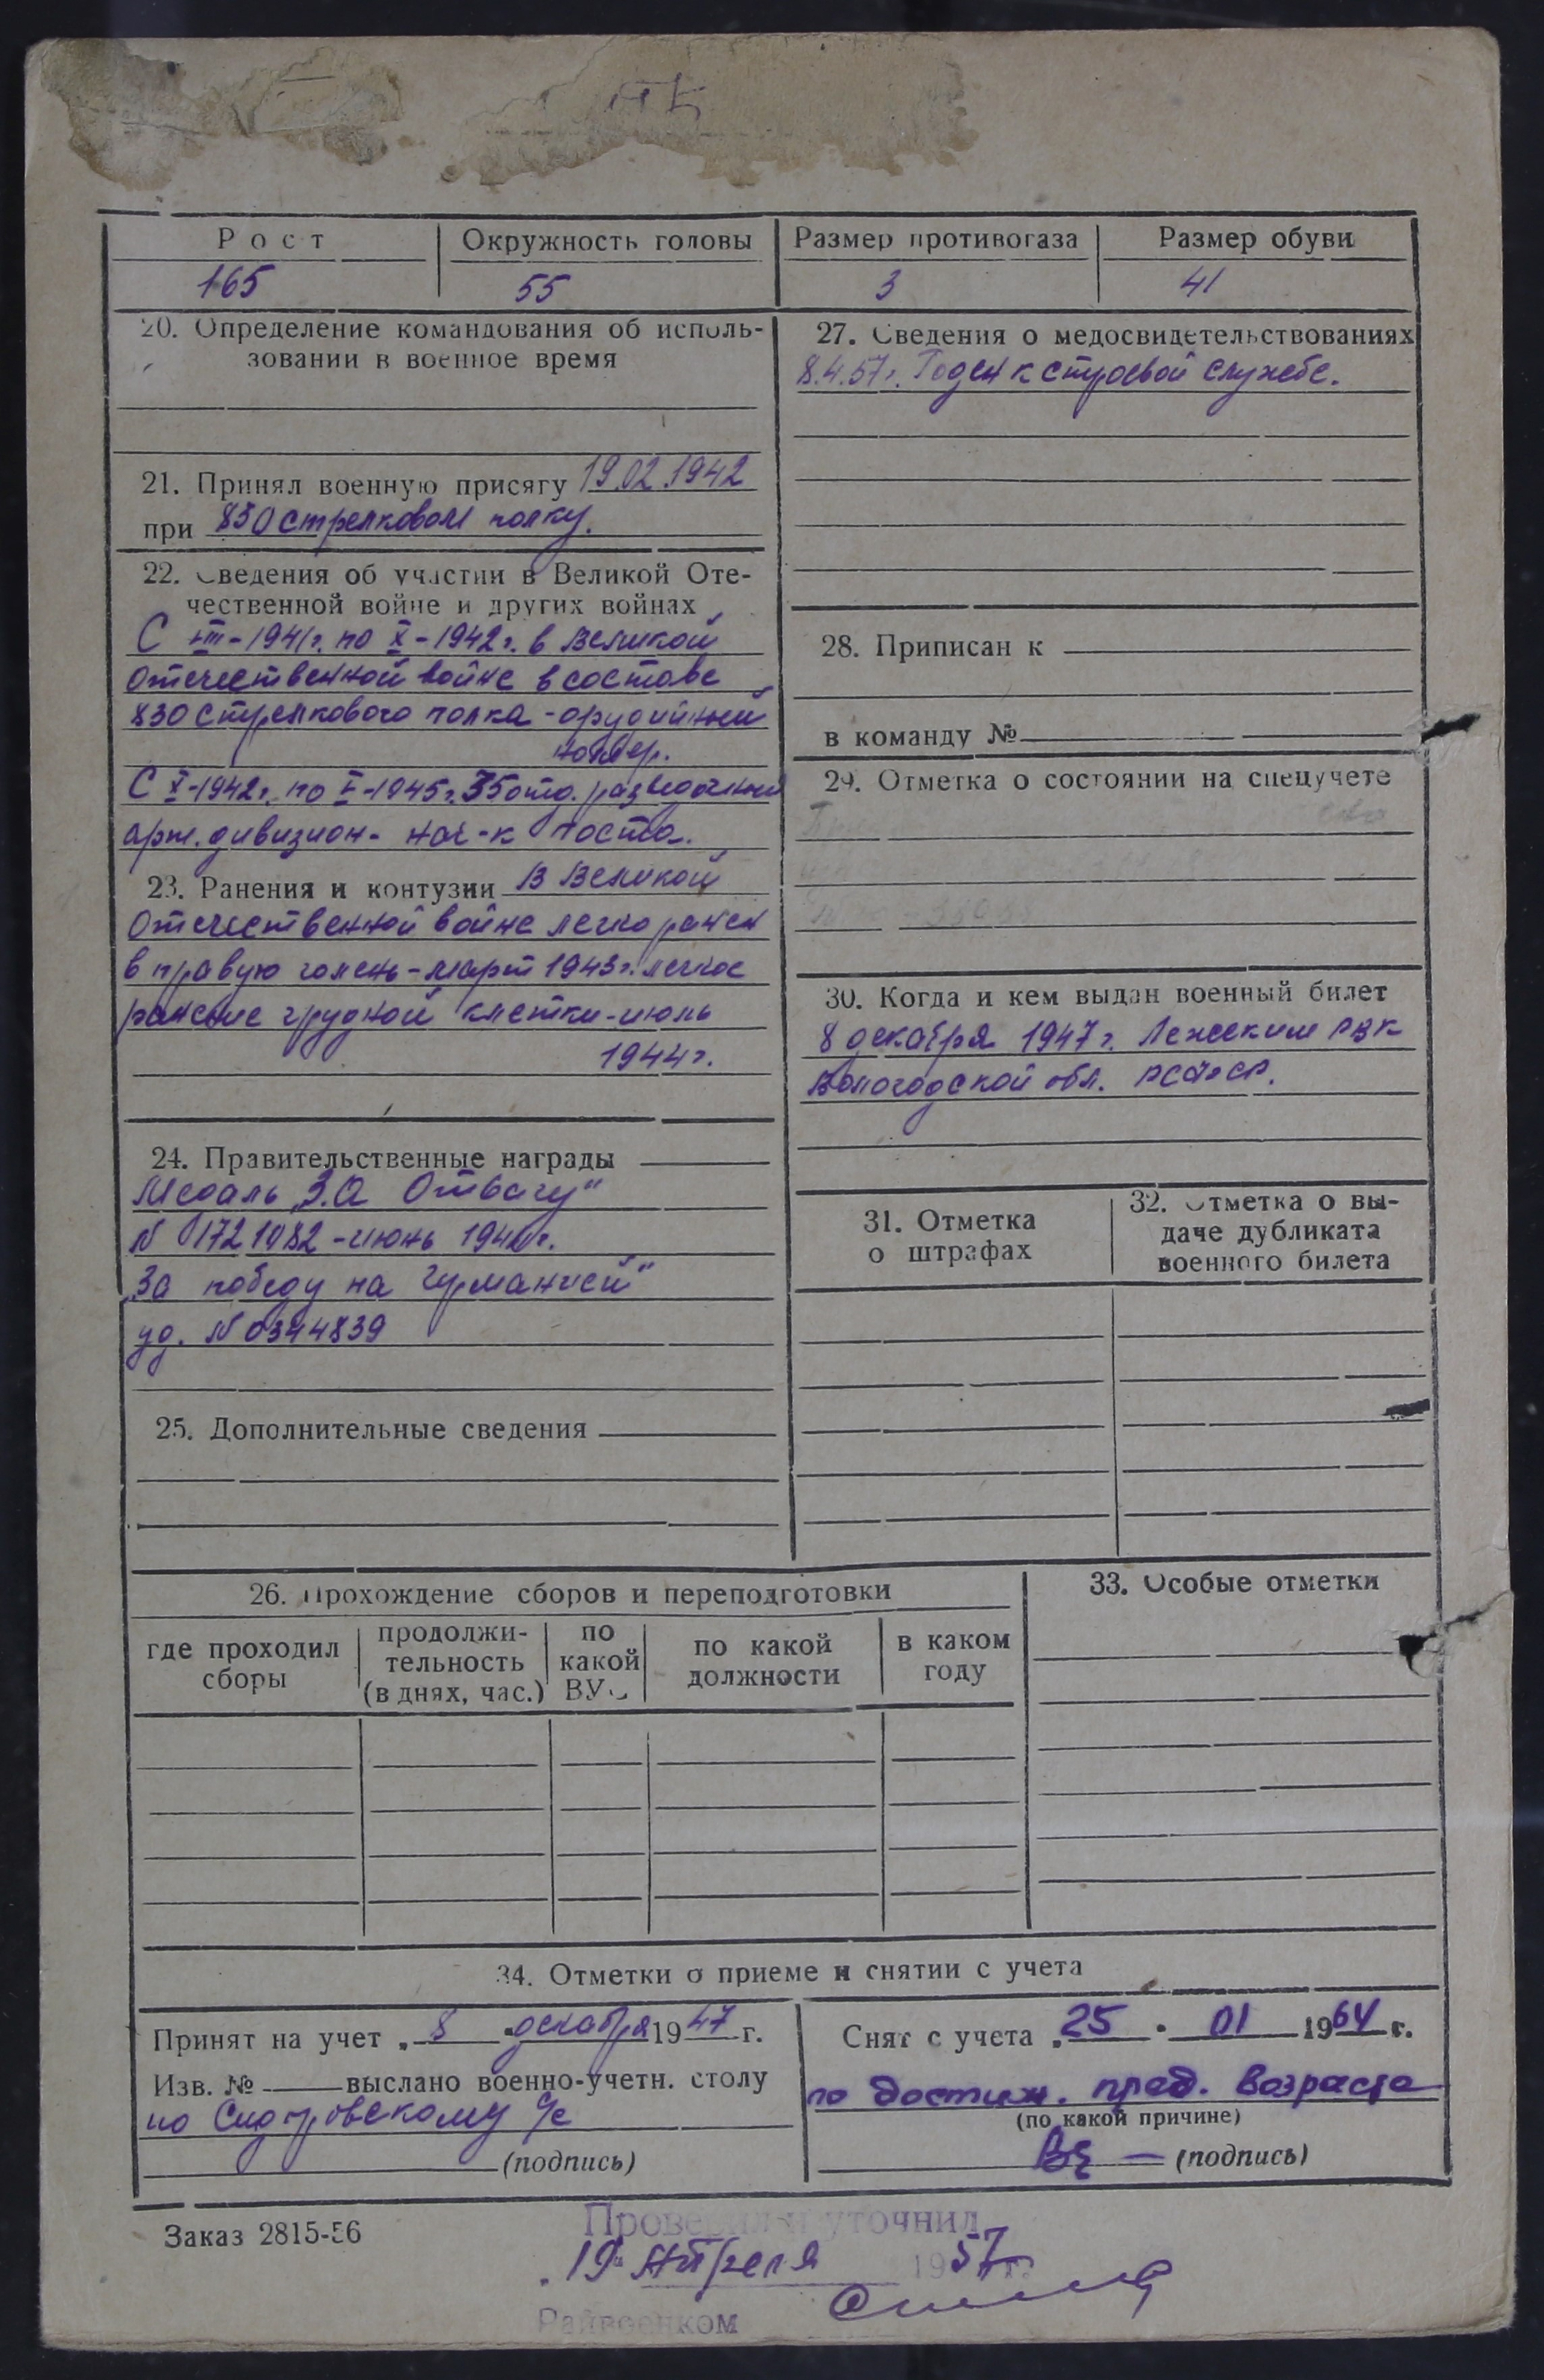 Рост
Окружность головы
Размер противогаза
Размер обуви
165
55
3
41
20. Определение командования об исполь-
зовании в военное время
21. Принял военную присягу 19.02.1942
при 830 стрелковом полку.
22. Сведения об участии в Великой Оте-
чественной войне и других войнах
С III-1941г. по X-1942г. в Великой
Отечественной войне в составе
830 стрелкового полка - орудийный
номер.
С X-1942г. по V-1945г. 35 отд. разведочный
арт. дивизион - нач-к поста.
23. Ранения и контузии В Великой
Отечественной войне легко ранен
в правую голень - март 1943г. легкое
ранение грудной клетки - июль
1944г.
24. Правительственные награды
Медаль „За Отвагу"
N 1721982 - июнь 194 г.
„За победу на Германией"
уд. N 0344839
25. Дополнительные сведения
27. Сведения о медосвидетельствованиях
8.4.57г. Годен к строевой службе.
28. Приписан к
в команду №
29. Отметка о состоянии на спецучете
30. Когда и кем выдан военный билет
8 декабря 1947г. Лежским РВК
Вологодской обл. РСФСР.
31. Отметка
о штрафах
32. Отметка о вы-
даче дубликата
военного билета
26. Прохождение сборов и переподготовки
где проходил
сборы
продолжи-
тельность
(в днях, час.)
по
какой
ВУС
по какой
должности
в каком
году
33. Особые отметки
34. Отметки о приеме и снятии с учета
Принят на учет „ 8 " декабря 1947 г.
Изв. № выслано военно-учетн. столу
по Сидоровскому с/с
(подпись)
Снят с учета „ 25 " 01 1964 г.
по достиж. пред. возраста
(по какой причине)
(подпись)
Заказ 2815-56
Проверил и уточнил
„19" Апреля 1957 г.
Райвоенком